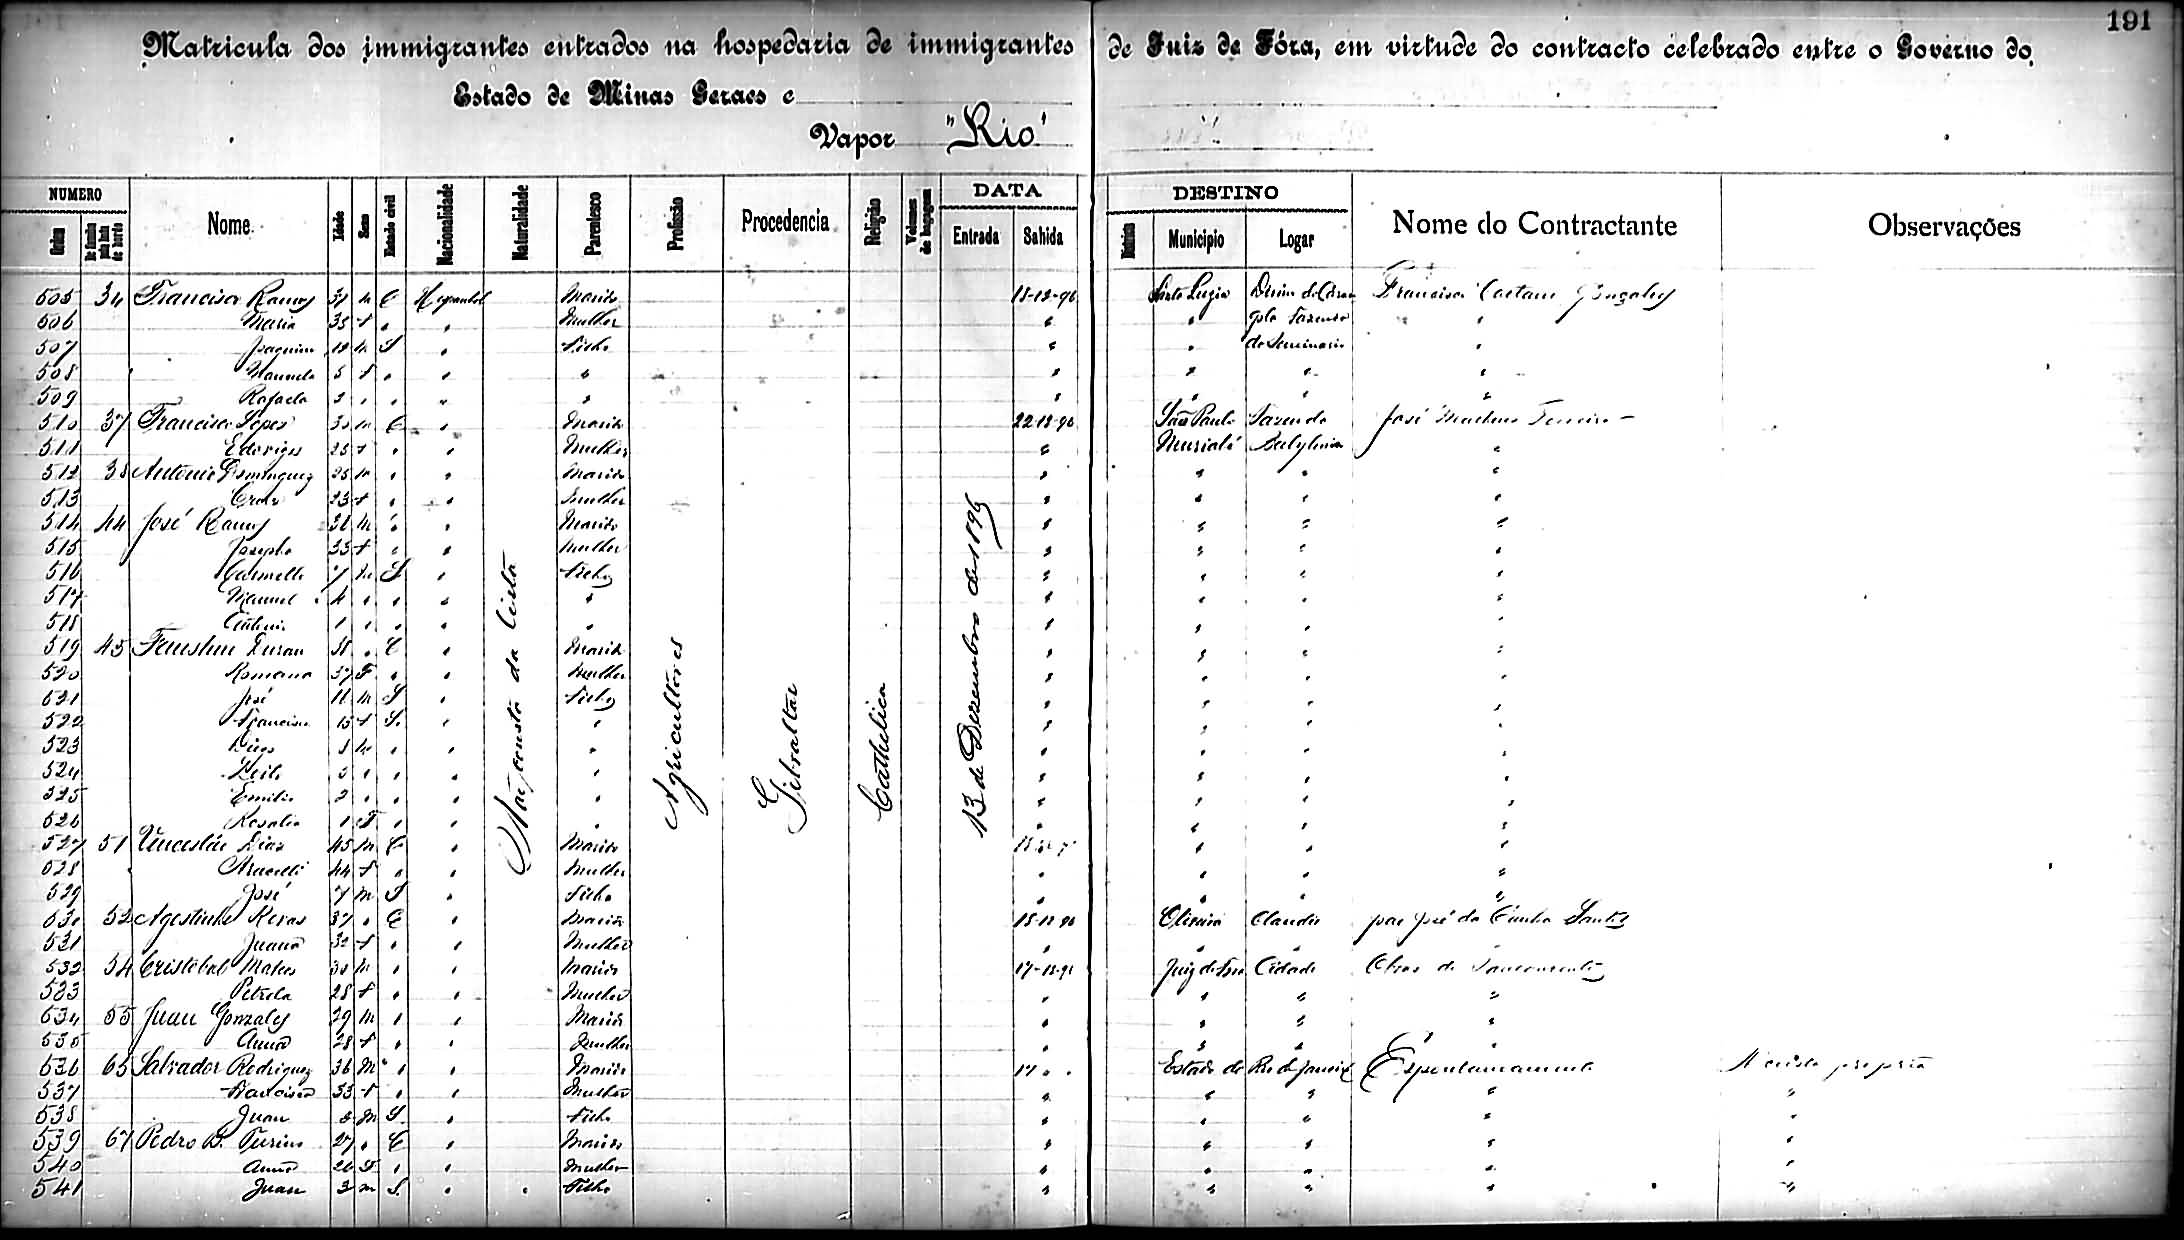 191
Matricula dos immigrantes entrados na hospedaria de immigrantes de Juiz de Fóra, em virtude do contracto celebrado entre o Governo do
Estado de Minas Geraes e
Vapor "Rio"
NUMERO DATA DESTINO
Ordem De familia pela lista de bordo Nome Idade Sexo Estado civil Nacionalidade Naturalidade Parentesco Profissão Procedencia Religião Volumes de bagagem Entrada Sahida Districto Municipio Logar Nome do Contractante Observações
Não consta da lista
Agricultores
Gibraltar
Catholica
13 de Dezembro de 1896
505 34 Francisco Ramos 37 m C Marido 18-12-96 Santa Luzia Francisco Caetano Gonçalves
506 Maria 35 f " " Mulher " " pela Fazenda "
507 Joaquim m S " Filho " " do Seminario "
508 Manuela 5 f " " " " " " "
509 Rafaela " " " " " " " "
510 37 Francisco Lopes 30 m C " Marido 22-12-96 São Paulo Fazenda José
511 Edoviges 25 f " " Mulher " Muriahé Babylonia "
512 38 Antonio Dominguez 25 m " " Marido " " " "
513 Cruz 23 f " " Mulher " " " "
514 44 José Ramos m " " Marido " " " "
515 Josepha 35 f " " Mulher " " " "
516 7 m S " Filho " " " "
517 Manuel 4 " " " " " " " "
518 Antonio 1 " " " " " " " "
519 45 Duran 38 " C " Marido " " " "
520 Romana 37 F " " Mulher " " " "
521 José m S " Filho " " " "
522 Francisca 15 f S. " " " " " "
523 8 m " " " " " " "
524 " " " " " " " "
525 Emilio 2 " " " " " " " "
526 Rosalia 1 F " " " " " " "
527 51 Diaz 45 m C " Marido " " "
528 44 f " " Mulher " " " "
529 José 7 m S " Filho " " " "
530 52 Agostinho 37 " C " Marido 18-12-96 Oliveira Claudio por José da Cunha Santos
531 Juana 32 f " " Mulher " " " "
532 54 Cristobal Mateo 30 m " " Marido 17-12-96 Juiz de Fóra Cidade Obras de Saneamento
533 28 f " " Mulher " " " "
534 55 Juan Gonzales 29 m " " Marido " " " "
535 Anna 28 f " " Mulher " " " "
536 65 Salvador Rodriguez 36 M " " Marido 17 " " Estado do Rio de Janeiro Espontaneamente
537 33 f " " Mulher " " " " "
538 Juan m S. " Filho " " " " "
539 67 Pedro 27 " C " Marido " " " " "
540 Anna 26 F " " Mulher " " " " "
541 Juan 3 m S. " " Filho " " " " "